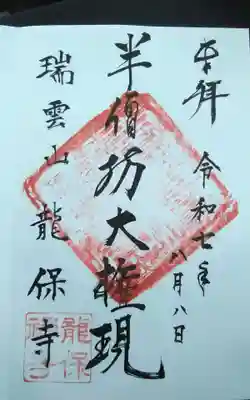 奉拝 令和七年八月八日
半僧坊大権現
瑞雲山龍保寺